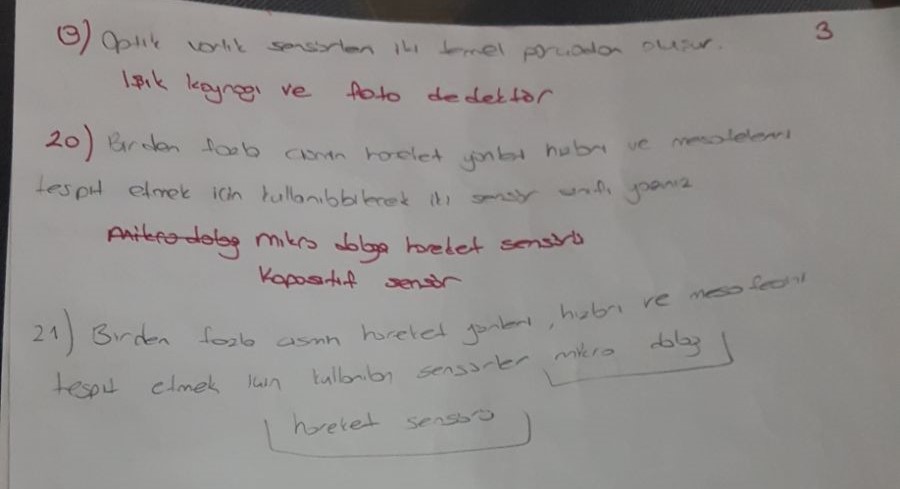 19) Optik varlık sensörleri iki temel parçadan oluşur. 3
Işık kaynağı ve foto dedektör
20) Birden fazla cismin hareket yönleri hızları ve mesafelerini
tespit etmek için kullanılabilecek iki sensör sınıfı yazınız
mikro dalga mikro dalga hareket sensörü
Kapasitif sensör
21) Birden fazla cismin hareket yönleri, hızları ve mesafelerini
tespit etmek için kullanılan sensörler mikro dalga
hareket sensörü